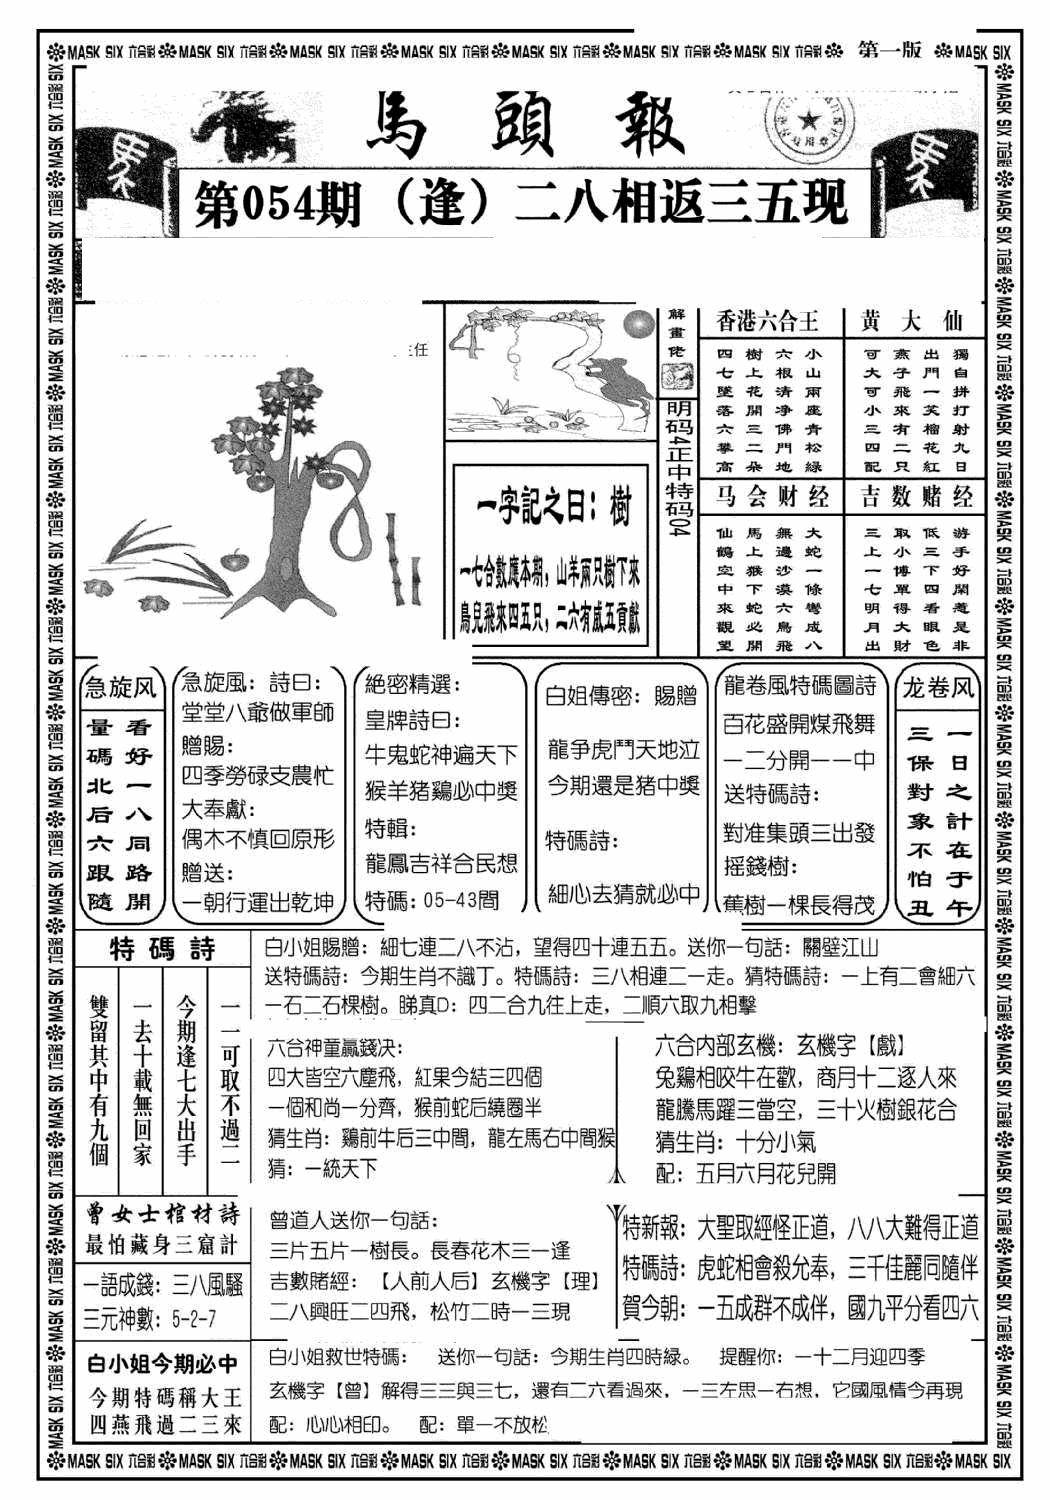 MASK SIX 六合彩 MASK SIX 六合彩 MASK SIX 六合彩 MASK SIX 六合彩 MASK SIX 六合彩 MASK SIX 六合彩 MASK SIX 六合彩 第一版 MASK SIX
馬頭報
第054期（逢）二八相返三五现
主任
解畫佬
明码4正中特码04
一字記之曰：樹
一七合數應本期，山羊兩只樹下來
鳥兒飛來四五只，二六有威五貢獻
香港六合王
小山兩座青松綠
六根清凈佛門地
樹上花開三二朵
四七墜落六攀高
黃大仙
獨自拼打射九日
出門一笑榴花紅
燕子飛來有二只
可大可小三四配
马会财经
大蛇一條彎成八
無邊沙漠六鳥飛
馬上猴下蛇必開
仙鶴空中來觀望
吉数赌经
游手好閑惹是非
低三下四看眼色
取小博單得大財
三上一七明月出
急旋风
看好一八同路開
量碼北后六跟隨
急旋風：詩曰：
堂堂八爺做軍師
贈賜：
四季勞碌支農忙
大奉獻：
偶木不慎回原形
贈送：
一朝行運出乾坤
絶密精選：
皇牌詩曰：
牛鬼蛇神遍天下
猴羊猪鷄必中獎
特輯：
龍鳳吉祥合民想
特碼：05-43間
白姐傳密：賜贈
龍争虎鬥天地泣
今期還是猪中獎
特碼詩：
細心去猜就必中
龍卷風特碼圖詩
百花盛開煤飛舞
一二分開一一中
送特碼詩：
對准集頭三出發
摇錢樹：
蕉樹一棵長得茂
龙卷风
一日之計在于午
三保對象不怕丑
特碼詩
一一可取不過二
今期逢七大出手
一去十載無回家
雙留其中有九個
白小姐賜贈：細七連二八不沾，望得四十連五五。送你一句話：關壁江山
送特碼詩：今期生肖不識丁。特碼詩：三八相連二一走。猜特碼詩：一上有二會細六
一石二石棵樹。睇真D：四二合九往上走，二順六取九相擊
六合神童贏錢决：
四大皆空六塵飛，紅果今結三四個
一個和尚一分齊，猴前蛇后繞圈半
猜生肖：鷄前牛后三中間，龍左馬右中間猴
猜：一統天下
六合内部玄機：玄機字【戲】
兔鷄相咬牛在歡，商月十二逐人來
龍騰馬躍三當空，三十火樹銀花合
猜生肖：十分小氣
配：五月六月花兒開
曾女士棺材詩
最怕藏身三窟計
一語成錢：三八風騷
三元神數：5-2-7
曾道人送你一句話：
三片五片一樹長。長春花木三一逢
吉數賭經：【人前人后】玄機字【理】
二八興旺二四飛，松竹二時一三現
特新報：大聖取經怪正道，八八大難得正道
特碼詩：虎蛇相會殺允奉，三千佳麗同隨伴
賀今朝：一五成群不成伴，國九平分看四六
白小姐今期必中
今期特碼稱大王
四燕飛過二三來
白小姐救世特碼： 送你一句話：今期生肖四時緑。 提醒你：一十二月迎四季
玄機字【曾】解得三三與三七，還有二六看過來，一三左思一右想，它國風情今再現
配：心心相印。 配：單一不放松
MASK SIX 六合彩 MASK SIX 六合彩 MASK SIX 六合彩 MASK SIX 六合彩 MASK SIX 六合彩 MASK SIX 六合彩 MASK SIX 六合彩 MASK SIX 六合彩 MASK SIX